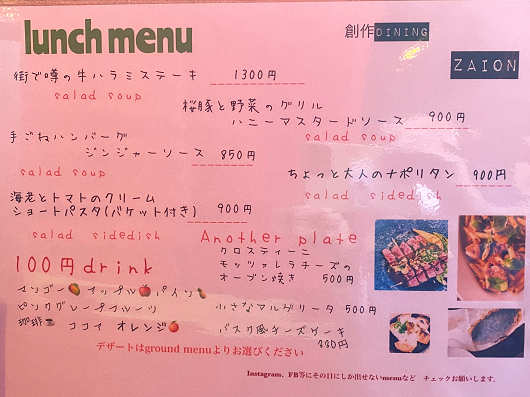 lunch menu
創作DINING
ZAION
街で噂の牛ハラミステーキ 1300円
salad soup
桜豚と野菜のグリル
ハニーマスタードソース 900円
salad soup
手ごねハンバーグ
ジンジャーソース 850円
salad soup
ちょっと大人のナポリタン 900円
salad sidedish
海老とトマトのクリーム
ショートパスタ(バケット付き) 900円
salad sidedish
Another plate
クロスティーニ
モッツァレラチーズの
オーブン焼き 500円
小さなマルゲリータ 500円
バスク風チーズケーキ
330円
100円drink
マンゴー アップル パイン
ピンクグレープフルーツ
珈琲 ココイ オレンジ
デザートはground menuよりお選びください
Instagram、FB等にその日にしか出せないmenuなど チェックお願いします。